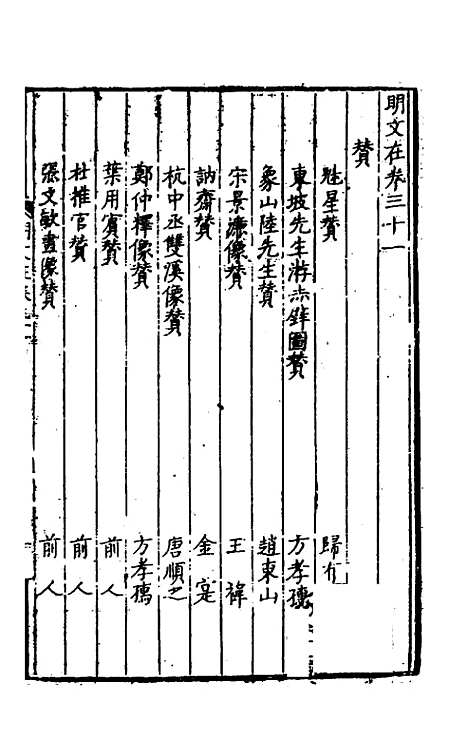 明文在卷三十一
贊
魁星贊 歸有
東坡先生游赤壁圖贊 方孝孺
象山陸先生贊 趙東山
宋景濂像贊 王禕
訥齋贊 金寔
杭中丞雙溪像贊 唐順之
鄭仲釋像贊 方孝孺
葉用賓贊 前人
杜推官贊 前人
張文敏畫像贊 前人